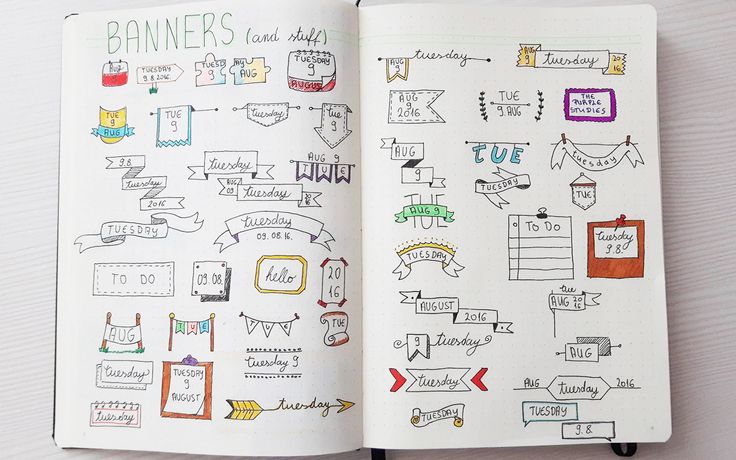 BANNERS (and stuff)
AUG
9
TUESDAY
9.8.2016.
TUESDAY
9
MY
AUG
TUESDAY
9
AUGUST
TUE
9
AUG
TUE
9
tuesday
TUE
9
9.8.
tuesday
2016
tuesday
AUG
09
tuesday
20
16
AUG 9
TUE
TUESDAY
tuesday
09.08.16.
TO DO
09.08.
hello
20
16
AUG
TUE
TUE
TUE
tuesday
TUESDAY
9
AUGUST
tuesday 9
tuesday
tuesday
AUG
9
tuesday
tuesday
20
16
AUG 9
2016
TUE
9.AUG
THE
PURPLE
STUDIES
AUG
9
TUE
TUESDAY
tuesday
TUE
TUE
AUG 9
TO DO
tuesday
9.8.
TUESDAY
AUGUST
2016
tue
AUG 20
16
9
tuesday
AUG
tuesday
AUG
tuesday
2016
TUESDAY
TUESDAY
9.8.